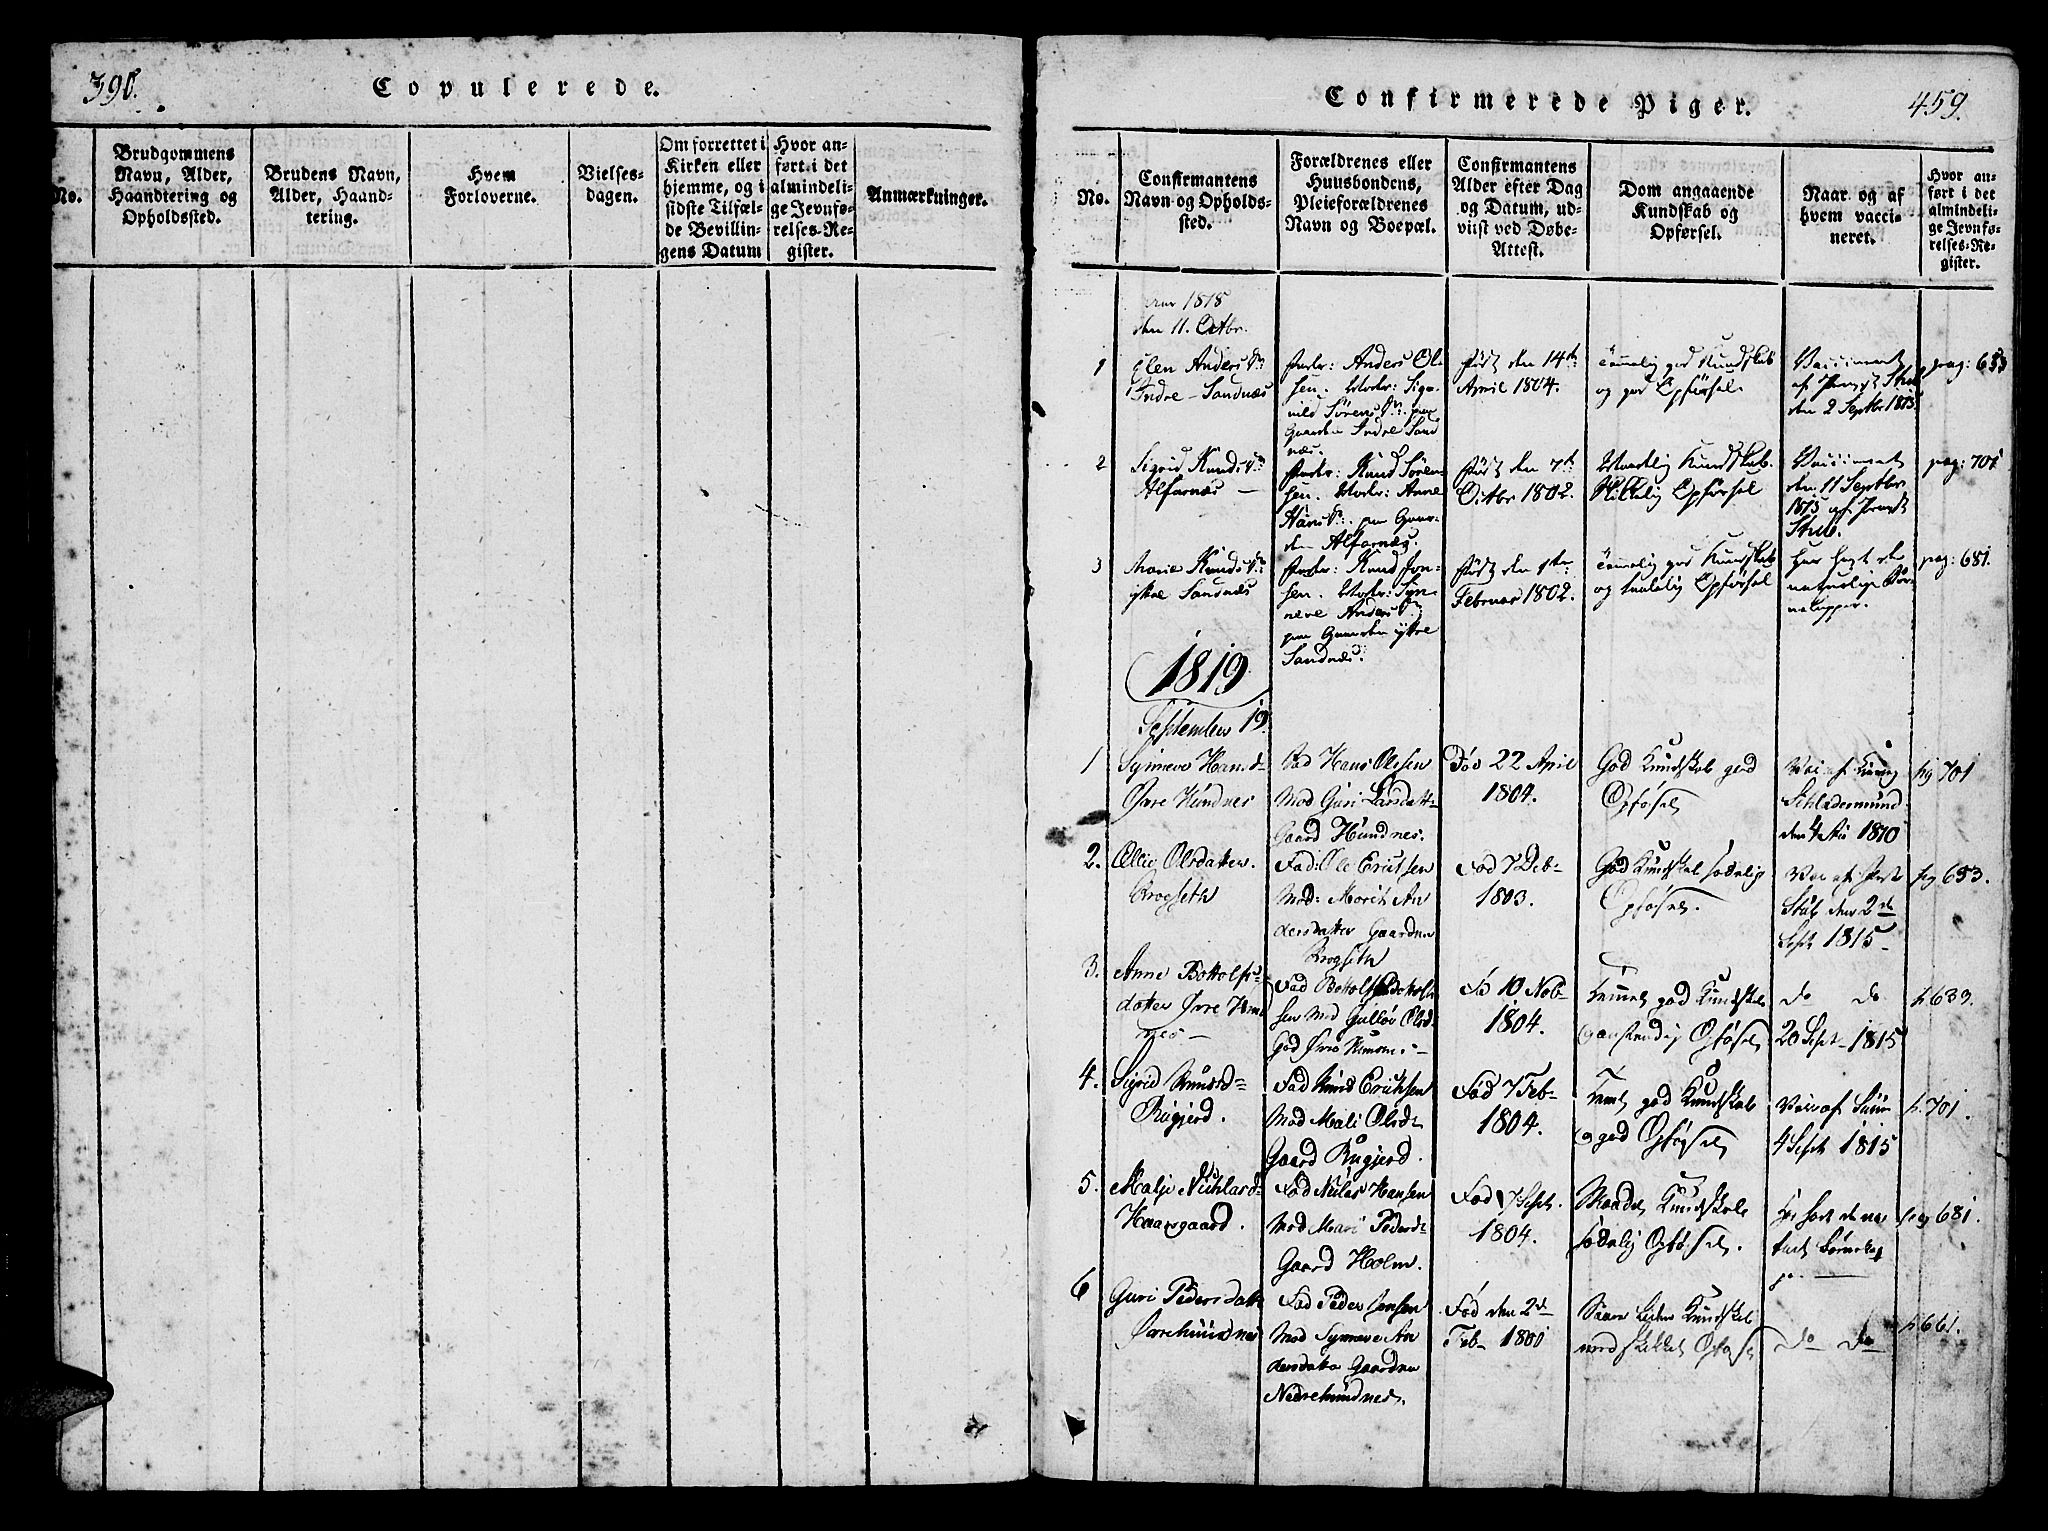 390.
Copulerede.
No.
Brudgommens
Navn, Alder,
Haandtering og
Opholdssted.
Brudens Navn,
Alder, Haand-
tering.
Hvem
Forloverne.
Vielses-
dagen.
Om forrettet i
Kirken eller
hjemme, og i
sidste Tilfæl-
de Bevillin-
gens Datum
Hvor an-
ført i det
almindeli-
ge Jevnfø-
relses-Re-
gister.
Anmærkninger.
Confirmerede Piger.
459.
No.
Confirmantens
Navn og Opholds-
sted.
Forældrenes eller
Huusbondens,
Pleieforældrenes
Navn og Boepæl.
Confirmantens
Alder efter Dag
og Datum, ud-
viist ved Døbe-
Attest.
Dom angaaende
Kundskab og
Opførsel.
Naar og af
hvem vacci-
neret.
Hvor an-
ført i det
almindeli-
ge Jevnfø-
relses-Re-
gister.
1818
den 11. Octbr.
1
Elen Anders Dr:
Indre-Sandnæs
Fader: Anders Ol-
sen. Moder: Sig-
nild Sørens Dr: paa
Gaarden Indre Sand
næs.
født den 14de
April 1804.
Temmelig god Kundskab
og god Opførsel
Vaccineret
den 2 Septbr 1815
pag: 653
2
Sigrid Knuds Dr:
Alfarnæs —
Fader: Knud Søren-
sen. Moder: Anne
Hans Dr: paa Gaar-
den Alfarnæs.
født den 7de
Octbr 1802.
Maadelig Kundskab.
Skikkelig Opførsel
Vaccineret
den 11 Septbr
1815 af
pag: 701
3
Marie Knuds Dr:
ytre Sandnæs
Fader: Knud Jon-
sen. Moder: Syn-
neve Anders Dr:
paa Gaarden ytre
Sandnæs.
født den 1ste
Februar 1802.
Temmelig god Kundskab
og sædelig Opførsel
har havt de
naturlige Bør-
nekopper.
pag: 681.
1819
September 19.
1
Synneve Hansd-
Øvre Hundnes
Fad Hans Olesen
Mod Guri Larsdatt-
Gaard Hundnes.
Fød 22 April
1804.
God Kundskab god
Opførsel
1810
pg 701
2.
Ollie Olsdatter.
Krogseth
Fad: Ole Ericksen
Mod: Morith An
dersdatter Gaarden
Krogseth
Fød 7 Deb-
1803.
God Kundskab sædelig
Opførsel.
Vac af
Stub den 2de
Sept 1815-
pag 653.
3.
Anne Bottolfs-
datter Øvre Hund
nes —
Fad Botolf Bottolf
sen Mod Gulløv Olsd.
Fø 10 Nob-
1804.
Temmel god Kundskab
og anstendig Opførsel
do do
20 Sept- 1815
p. 633.
4.
Sigrid Knudsd-
Rugjerd.
Fad Knud Ericksen
Mod Mali Olsd-
Gaard Rugjerd.
Fød 7 Feb-
1804.
Teml god Kundskab
og god Opførsel
Vac af
4 Sept 1815
p. 701.
5.
Malje Nichlasd-
Haaegaard.
Fad Niclas Hansen
Mod Mari Pedersd-
Gaard Holm.
Fød 7 Sept.
1804.
Maadel Kundskab
sædelig Opførsel.
pag 681.
6
Guri Pedersdatt
Øvrehundnes
Fad Peder Jensen
Mod Synneve An
dersdatter Gaarden
Nedrehundnes.
Fød den 2de
Feb- 1801
Saare liden Kundskab
med skikkel Opførsel
do do
p. 661.